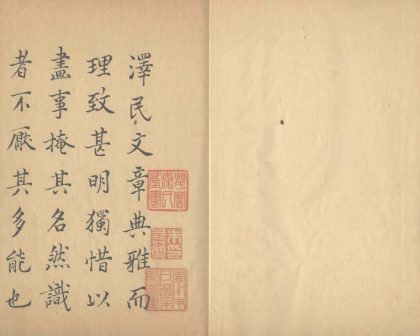 澤民文章典雅而
理致甚明獨惜以
畵事掩其名然識
者不厭其多能也